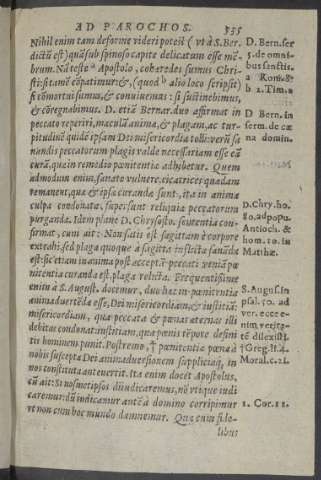 AD PAROCHOS. 535
Nihil enim tam deforme videri potest (vt à S. Ber.
dictū est) quā sub spinoso capite delicatum esse mē-
brum. Nā teste ᵃ Apostolo, cohæredes sumus Chri-
sti: si tamē cōpatimur: &, (quod ᵇ alio loco scripsit)
si cōmortui sumus, & conuiuemus: si sustinebimus,
& cōregnabimus. D. etiā Bernar. duo affirmat in
peccato reperiri, maculā animæ, & plagam, ac tur-
pitudinē quidē ipsam Dei misericordia tolli: verū sa-
nandis peccatorum plagis valde necessariam esse eā
curā, quæ in remedio pœnitentiæ adhibetur. Quem
admodum enim, sanato vulnere, cicatrices quædam
remanent, quæ & ipsæ curandæ sunt, ita in anima
culpa condonata, supersunt reliquiæ peccatorum
purgandæ. Idem plane D. Chrysosto. sententia con-
firmat, cum ait: Non satis est sagittam è corpore
extrahi, sed plaga quoque à sagitta inflicta sanāda
est: sic etiam in anima post acceptā peccati veniā pœ
nitentia curanda est plaga relicta. Frequentissime
enim à S. August. docemur, duo hæc in pœnitentia
animaduertēda esse, Dei misericordiam, & iustitiā:
misericordiam, qua peccata & pœnas æternas illis
debitas condonat: iustitiam, qua pœnis tēpore defini
tis hominem punit. Postremo, † pœnitentiæ pœna à
nobis suscepta Dei animaduersionem suppliciaq́;, in
nos constituta antevertit. Ita enim docet Apostolus,
cū ait: Si nosmetipsos diiudicaremus, nō vtique iudi
caremur: dū iudicamur autē à domino corripimur
vt non cum hoc mundo damnemur. Quæ cum fide-
libus
D. Bern. ser
5. de omni-
bus sanctis.
a Rom. 8.
b 2. Tim. 2
D. Bern. in
serm. de cœ
na domin.
D. Chry. ho.
80. ad popu.
Antioch. &
hom. 10. in
Matthæ.
S. Augus. in
psal. 50. ad
ver. ecce e-
nim, veritā-
tē dilexisti.
† Greg. li. 4.
Moral. c. 21.
1. Cor. 11.